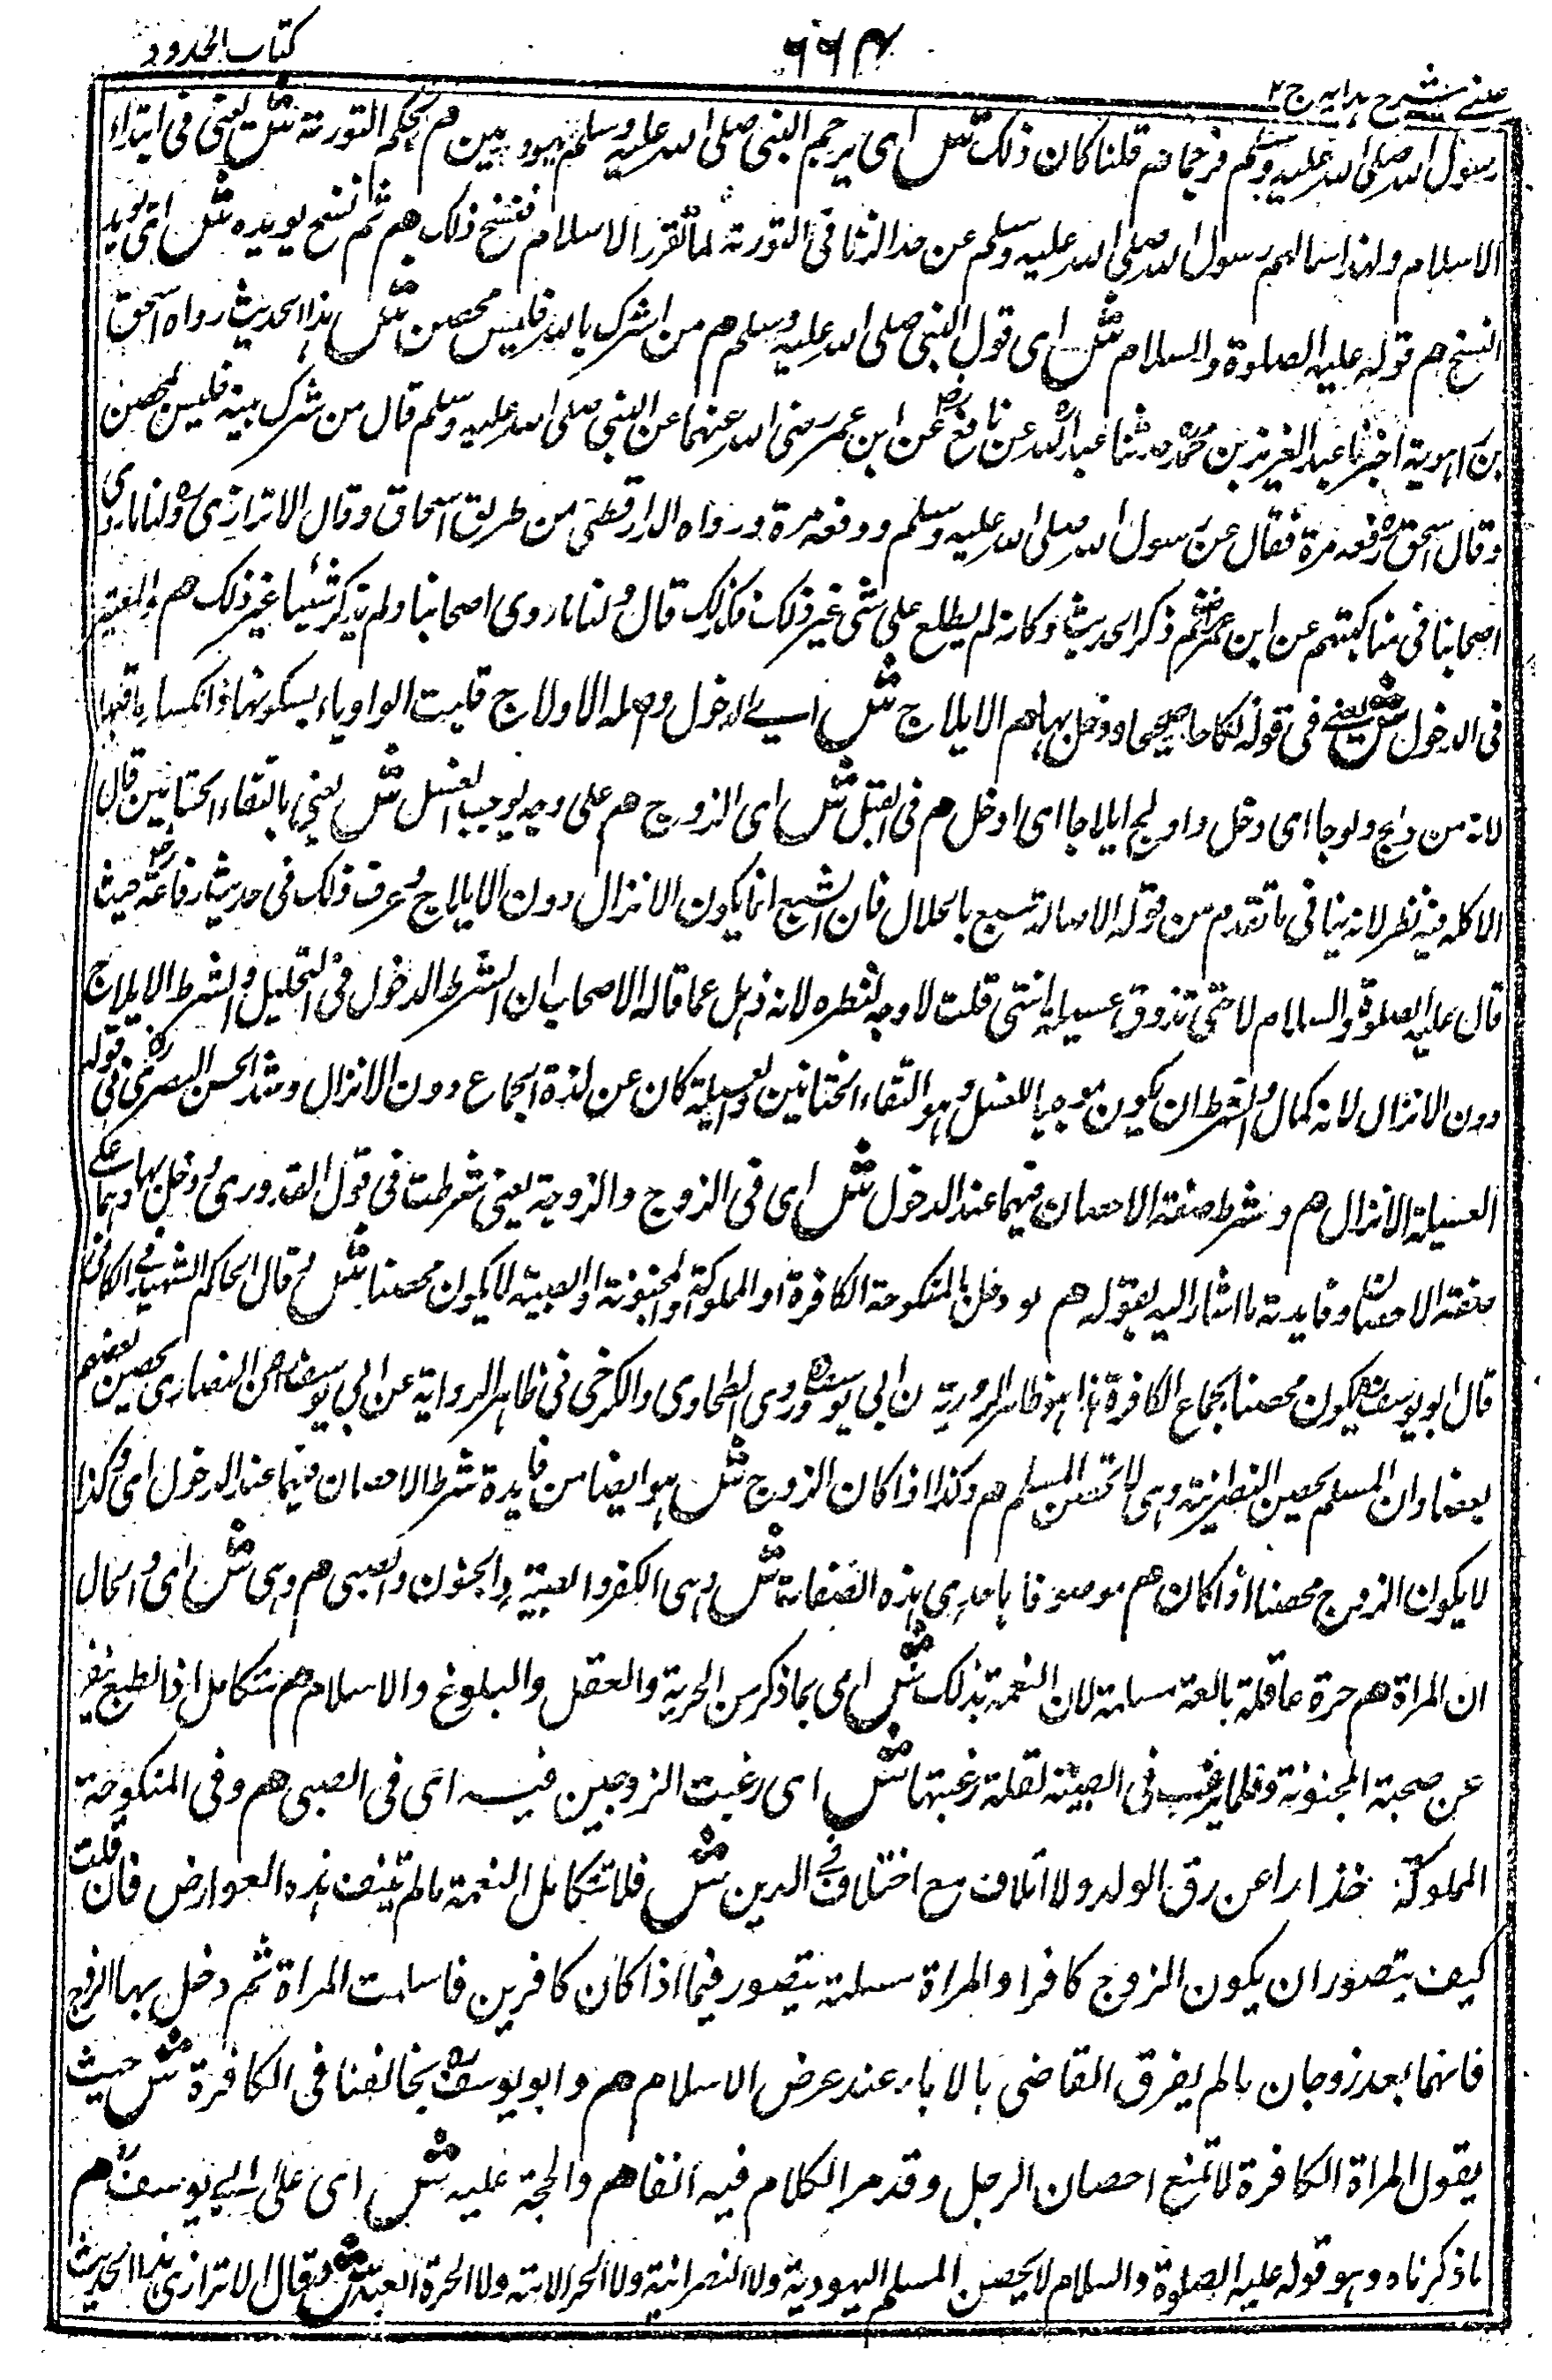 عینی شرح ہدایہ ج۲ ۶۶۴ کتاب الحدود
رسول الله صلی الله علیه وسلم فرجماهم قلنا كان ذلك ش ای یرجم النبی صلی الله علیه وسلم یهودیین م بحكم التورىة ش یعنی فی ابتداء
الاسلام ولهذا سالهم رسول الله صلی الله علیه وسلم عن حد الزنا فی التورىة لما تقرر الاسلام فنسخ ذلك هم ثم نسخ یویده ش ای یوید
النسخ هم قوله علیه الصلوة والسلام ش ای قول النبی صلی الله علیه وسلم هم من اشرك بالله فلیس محصن ش هذا الحدیث رواه اسحق
بن راهویة اخبرنا عبد العزیز بن محمد ثنا عبد الله عن نافع عن ابن عمر رضی الله عنهما عن النبی صلی الله علیه وسلم قال من شرك بینه فلیس بمحصن
وقال اسحق رفعه مرة فقال عن رسول الله صلی الله علیه وسلم ووقفه مرة ورواه الدارقطنی من طریق اسحاق وقال الاترازی ولنا ما روی
اصحابنا فی مناكبتهم عن ابن عمر ثم ذكر الحدیث وكانه لم یطلع علی شئ غیر ذلك فكذلك قال ولنا ما روی اصحابنا ولم یذكر شیئا غیر ذلك هم والمعتبر
فی الدخول ش یعنی فی قوله نكاحا صحیحا ودخل بها هم الایلاج ش ای الدخول واصله الاولاج قلبت الواو یاء بسكونها وانكسار ما قبلها
لانه من ولج ولوجا ای دخل واولج ایلاجا ای ادخل م فی القبل ش ای الزوج هم علی وجه یوجب الغسل ش یعنی بالتقاء الختانین قال
الاكله فیه نظر لانه ینافی ما تقدم من قوله الاصابة تسبع بالحلال فان الشبع انما یكون الانزال دون الایلاج وعرف ذلك فی حدیث رفاعة حیث
قال علیه الصلوة والسلام لا حتی تذوق عسیلة انتهی قلت لا وجه لنظره لانه ذهل عما قاله الاصحاب ان الشرط الدخول فی التحلیل والشرط الایلاج
دون الانزال لانه كمال والشرط ان یكون موجبا للغسل وهو التقاء الختانین والعسیلة كان عن لذة الجماع دون الانزال وشذ الحسن البصری فی قوله
العسیلة الانزال هم وشرط صفة الاحصان فیهما عند الدخول ش ای فی الزوج والزوجة یعنی شرطت فی قول القدوری ودخل بها وهما علی
صفة الاحصان وفایدته ما اشار الیه بقوله هم لو دخل بالمنكوحة الكافرة او المملوكة او المجنونة او الصبیة لا یكون محصنا ش وقال الحاكم الشهید فی الكافی
قال ابو یوسف یكون محصنا بجماع الكافرة هذا هو ظاهر الروریة ن ابی یوسف وروی الطحاوی والكرخی فی ظاهر الروایة عن ابی یوسف ان النصاری یحصن بعضهم
بعضا وان المسلم یحصن النصرانیة وهی لا تحصن المسلم هم وكذا اذا كان الزوج ش هو ایضا من فایدة شرط الاحصان فیهما عند الدخول ای وكذا
لا یكون الزوج محصنا اذا كان هم موصوفا باحدی هذه الصفات ش وهی الكفر والعبیة والجنون والصبی هم وهی ش ای والحال
ان المراة هم حرة عاقلة بالغة مسلمة لان النعمة بذلك ش ای بما ذكر من الحریة والعقل والبلوغ والاسلام هم تتكامل اذ الطبع ینفر
عن صحبة المجنونة وقلما یرغب فی الصبیة لقلة رغبتها ش ای رغبت الزوجین فیه ای فی الصبی هم وفی المنكوحة
المملوكة حذارا عن رق الولد ولا ائتلاف مع اختلاف فی الدین ش فلا تتكامل النعمة ما لم تنتف هذه العوارض فان قلت
كیف یتصور ان یكون الزوج كافرا والمراة مسلمة یتصور فیما اذا كان كافرین فاسلمت المراة ثم دخل بها الزوج
فانهما بعد زوجان ما لم یفرق القاضی بالاباء عند عرض الاسلام هم وابو یوسف یخالفنا فی الكافرة ش حیث
یقول المراة الكافرة لا تمنع احصان الرجل وقد مر الكلام فیه انفا هم والحجة علیه ش ای علی ابی یوسف هم
ما ذكرناه وهو قوله علیه الصلوة والسلام لا یحصن المسلم الیهودیة ولا النصرانیة ولا الحر الامة ولا الحرة العبد ش قال الاترازی هذا الحدیث